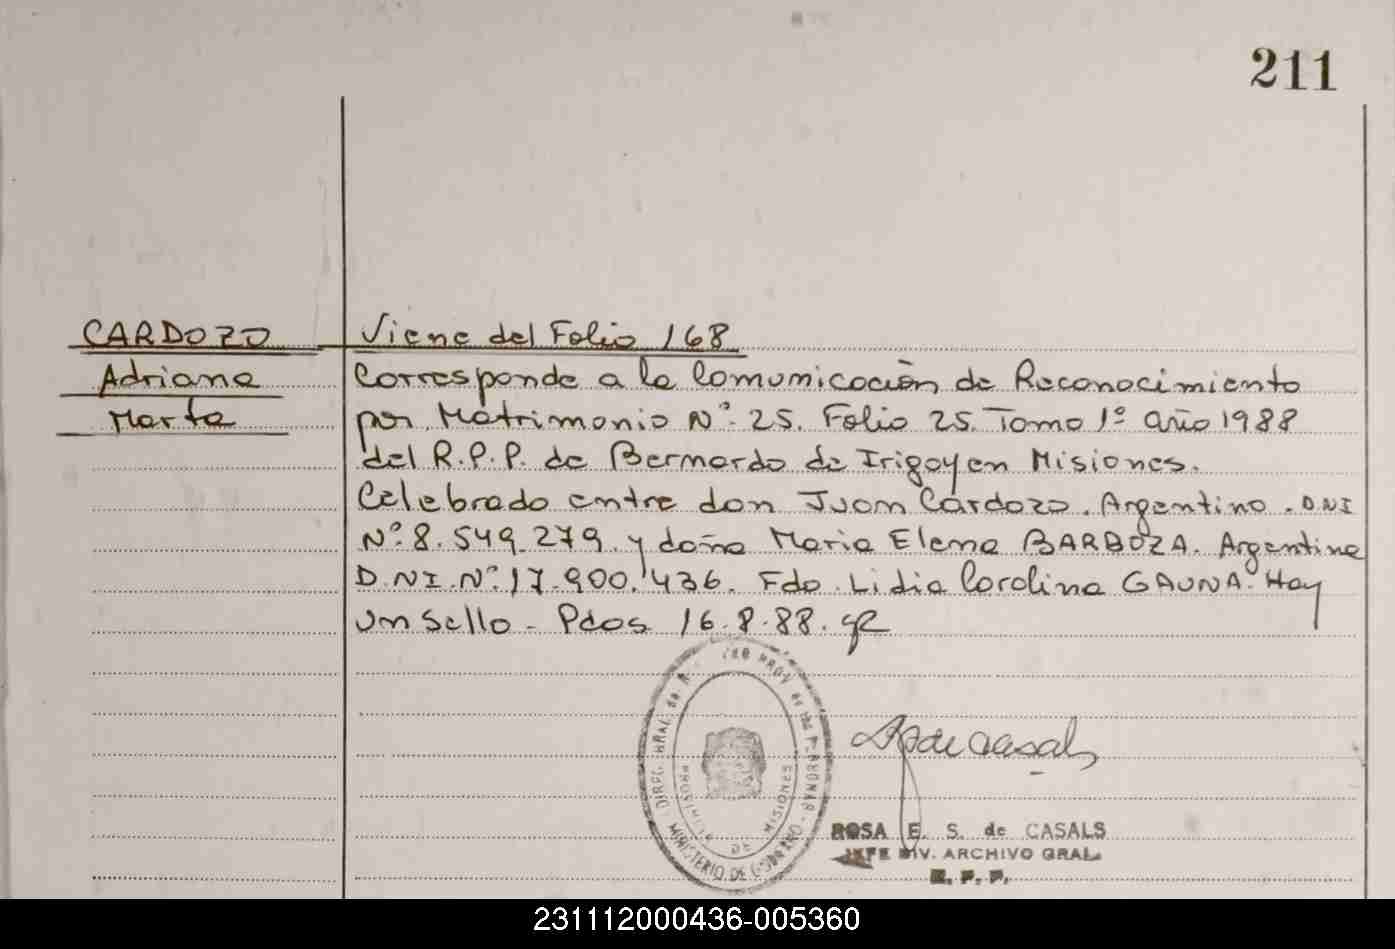 211
CARDOZO
Adriana
Marta
Viene del Folio 168
Corresponde a la Comunicación de Reconocimiento
por Matrimonio Nº 25. Folio 25. Tomo 1º año 1988
del R.P.P. de Bernardo de Irigoyen Misiones.
Celebrado entre don Juan Cardozo. Argentino. DNI
Nº 8.549.279. y doña Maria Elena BARBOZA. Argentina
D.NI.Nº 17.900.436. Fdo. Lidia Carolina GAUNA. Hay
un sello - Pdas 16.8.88.
DIREC. GRAL. de
MINISTERIO DE GOBIERNO
PROVINCIA DE MISIONES
de Casals
ROSA E. S. de CASALS
JEFE DIV. ARCHIVO GRAL.
R. P. P.
231112000436-005360